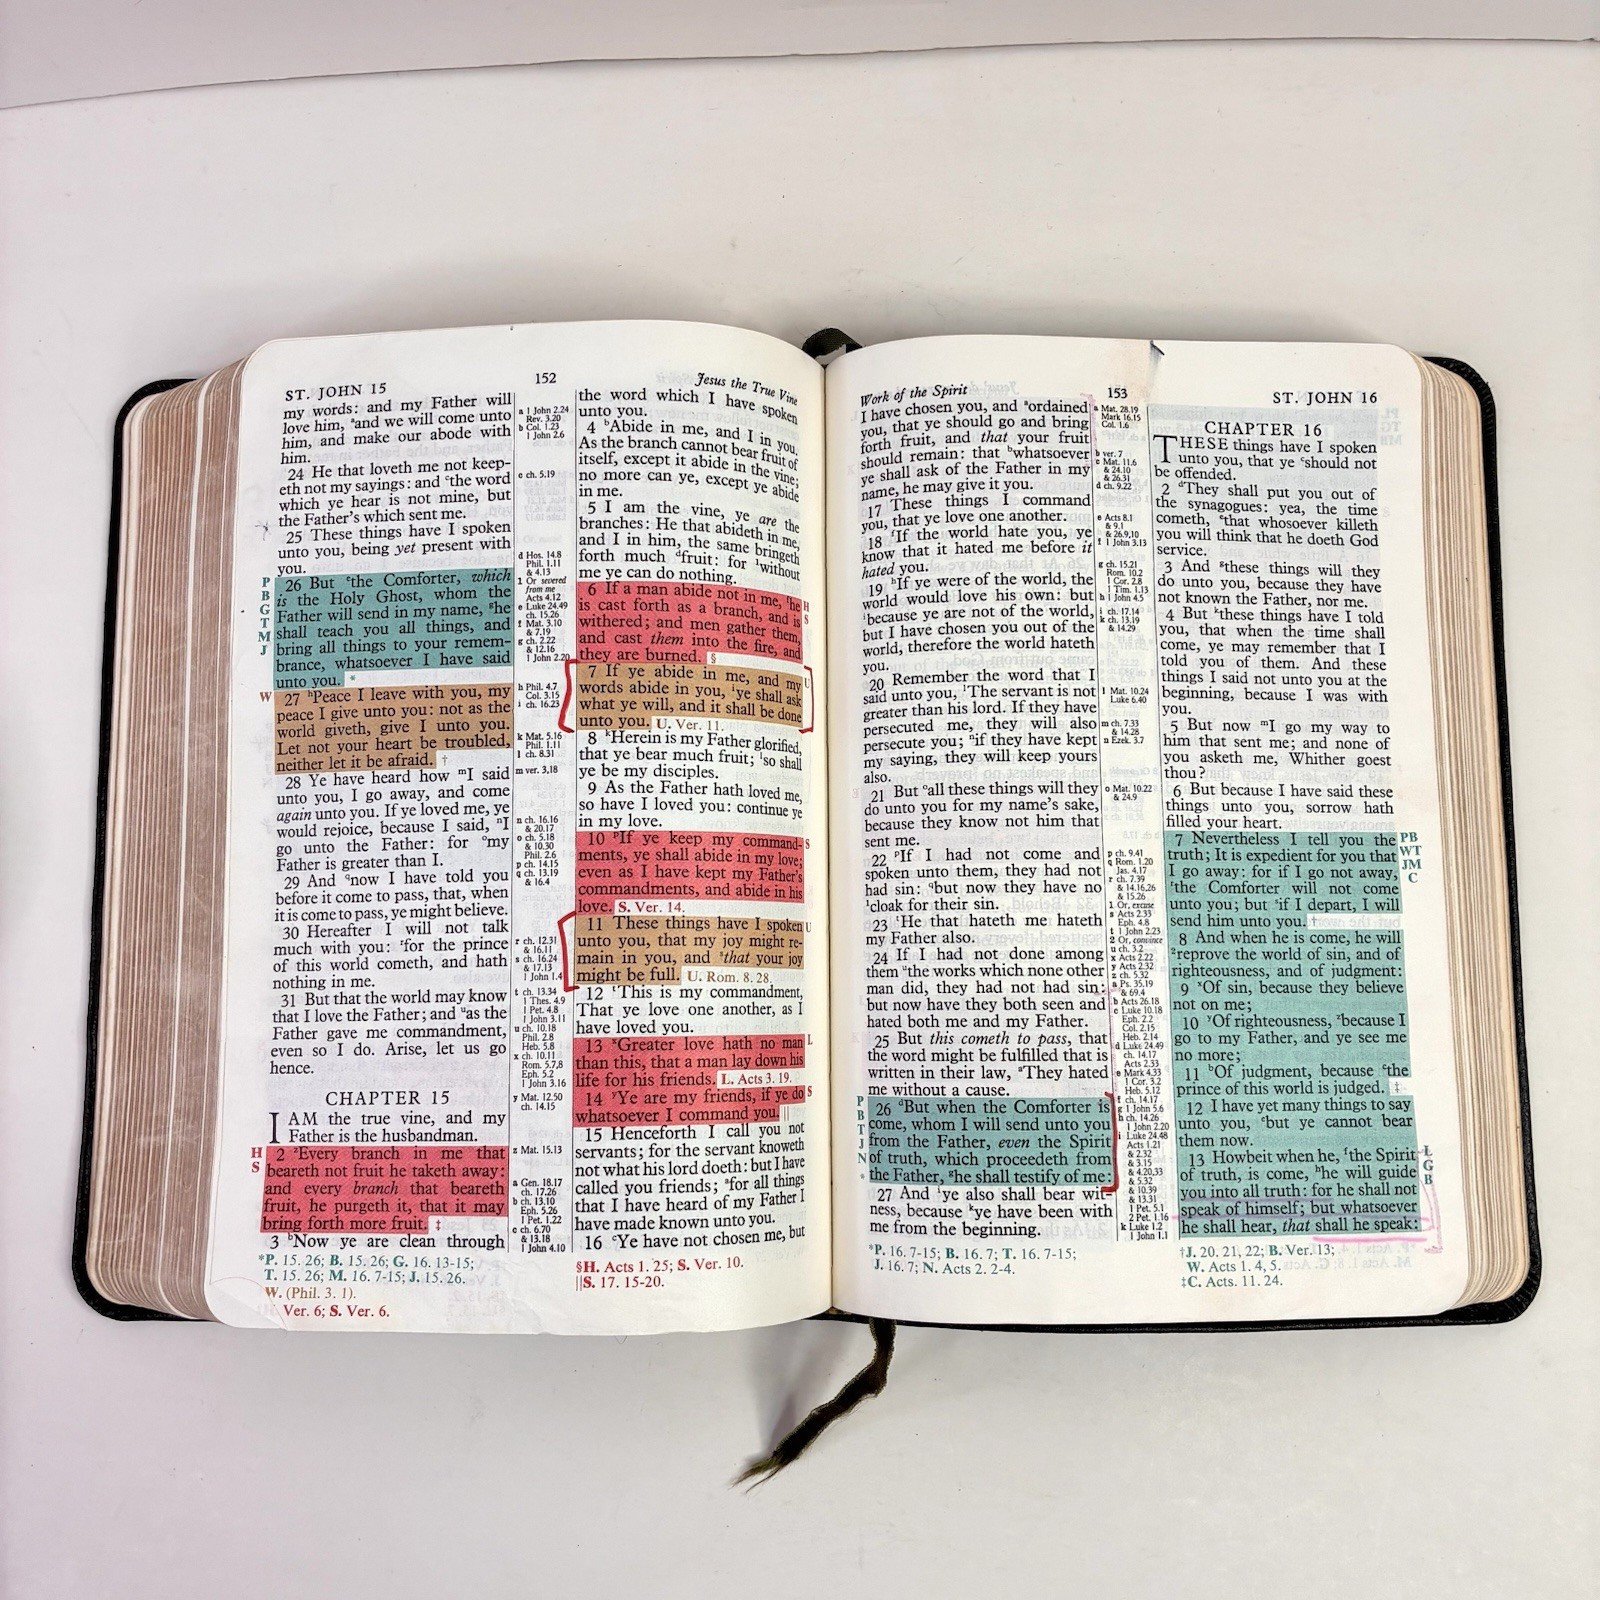 ST. JOHN 15
152
Jesus the True Vine
my words: and my Father will
love him, ᵃand we will come unto
him, and make our abode with
him.
24 He that loveth me not keep-
eth not my sayings: and ᶜthe word
which ye hear is not mine, but
the Father's which sent me.
25 These things have I spoken
unto you, being yet present with
you.
26 But ᶜthe Comforter, which
is the Holy Ghost, whom the
Father will send in my name, ᵍhe
shall teach you all things, and
bring all things to your remem-
brance, whatsoever I have said
unto you. *
27 ʰPeace I leave with you, my
peace I give unto you: not as the
world giveth, give I unto you.
Let not your heart be troubled,
neither let it be afraid. †
28 Ye have heard how ᵐI said
unto you, I go away, and come
again unto you. If ye loved me, ye
would rejoice, because I said, ⁿI
go unto the Father: for ᵒmy
Father is greater than I.
29 And ᵒnow I have told you
before it come to pass, that, when
it is come to pass, ye might believe.
30 Hereafter I will not talk
much with you: ʳfor the prince
of this world cometh, and hath
nothing in me.
31 But that the world may know
that I love the Father; and ᵘas the
Father gave me commandment,
even so I do. Arise, let us go
hence.
CHAPTER 15
I AM the true vine, and my
Father is the husbandman.
2 ᶻEvery branch in me that
beareth not fruit he taketh away:
and every branch that beareth
fruit, he purgeth it, that it may
bring forth more fruit. ‡
3 ᵇNow ye are clean through
P
B
G
T
M
J
W
H
S
a 1 John 2.24
Rev. 3.20
b Col. 1.23
1 John 2.6
c ch. 5.19
d Hos. 14.8
Phil. 1.11
& 4.13
1 Or severed
from me
Acts 4.12
e Luke 24.49
ch. 15.26
f Mat. 3.10
& 7.19
g ch. 2.22
& 12.16
1 John 2.20
h Phil. 4.7
Col. 3.15
i ch. 16.23
k Mat. 5.16
Phil. 1.11
l ch. 8.31
m ver. 3,18
n ch. 16.16
& 20.17
o ch. 5.18
& 10.30
Phil. 2.6
p ch. 14.15
q ch. 13.19
& 16.4
r ch. 12.31
& 16.11
s ch. 16.24
& 17.13
1 John 1.4
t ch. 13.34
1 Thes. 4.9
1 Pet. 4.8
1 John 3.11
u ch. 10.18
Phil. 2.8
Heb. 5.8
x ch. 10.11
Rom. 5.7,8
Eph. 5.2
1 John 3.16
y Mat. 12.50
ch. 14.15
z Mat. 15.13
a Gen. 18.17
ch. 17.26
b ch. 13.10
Eph. 5.26
1 Pet. 1.22
c ch. 6.70
& 13.18
1 John 4.10
the word which I have spoken
unto you.
4 ᵇAbide in me, and I in you.
As the branch cannot bear fruit of
itself, except it abide in the vine;
no more can ye, except ye abide
in me.
5 I am the vine, ye are the
branches: He that abideth in me,
and I in him, the same bringeth
forth much ᵈfruit: for ¹without
me ye can do nothing.
6 If a man abide not in me, ᶠhe
is cast forth as a branch, and is
withered; and men gather them,
and cast them into the fire, and
they are burned. §
7 If ye abide in me, and my
words abide in you, ⁱye shall ask
what ye will, and it shall be done
unto you. U. Ver. 11.
8 ᵏHerein is my Father glorified,
that ye bear much fruit; ˡso shall
ye be my disciples.
9 As the Father hath loved me,
so have I loved you: continue ye
in my love.
10 ᵖIf ye keep my command-
ments, ye shall abide in my love;
even as I have kept my Father's
commandments, and abide in his
love. S. Ver. 14.
11 These things have I spoken
unto you, that my joy might re-
main in you, and ˢthat your joy
might be full. U. Rom. 8. 28.
12 ᵗThis is my commandment,
That ye love one another, as I
have loved you.
13 ˣGreater love hath no man
than this, that a man lay down his
life for his friends. L. Acts 3. 19.
14 ʸYe are my friends, if ye do
whatsoever I command you. ||
15 Henceforth I call you not
servants; for the servant knoweth
not what his lord doeth: but I have
called you friends; ᵃfor all things
that I have heard of my Father I
have made known unto you.
16 ᶜYe have not chosen me, but
H
S
U
S
U
L
S
*P. 15. 26; B. 15. 26; G. 16. 13-15;
T. 15. 26; M. 16. 7-15; J. 15. 26.
W. (Phil. 3. 1).
Ver. 6; S. Ver. 6.
§H. Acts 1. 25; S. Ver. 10.
||S. 17. 15-20.
Work of the Spirit
153
ST. JOHN 16
I have chosen you, and ᵃordained
you, that ye should go and bring
forth fruit, and that your fruit
should remain: that ᵇwhatsoever
ye shall ask of the Father in my
name, he may give it you.
17 These things I command
you, that ye love one another.
18 ᶠIf the world hate you, ye
know that it hated me before it
hated you.
19 ʰIf ye were of the world, the
world would love his own: but
ⁱbecause ye are not of the world,
but I have chosen you out of the
world, therefore the world hateth
you.
20 Remember the word that I
said unto you, ˡThe servant is not
greater than his lord. If they have
persecuted me, they will also
persecute you; ⁿif they have kept
my saying, they will keep yours
also.
21 But ᵒall these things will they
do unto you for my name's sake,
because they know not him that
sent me.
22 ᵖIf I had not come and
spoken unto them, they had not
had sin: ᵠbut now they have no
¹cloak for their sin.
23 ᵗHe that hateth me hateth
my Father also.
24 If I had not done among
them ᵘthe works which none other
man did, they had not had sin:
but now have they both seen and
hated both me and my Father.
25 But this cometh to pass, that
the word might be fulfilled that is
written in their law, ᵃThey hated
me without a cause.
26 ᵈBut when the Comforter is
come, whom I will send unto you
from the Father, even the Spirit
of truth, which proceedeth from
the Father, ᵍhe shall testify of me:
27 And ⁱye also shall bear wit-
ness, because ᵏye have been with
me from the beginning.
P
B
T
J
N
*
a Mat. 28.19
Mark 16.15
Col. 1.6
b ver. 7
c Mat. 11.6
& 24.10
& 26.31
d ch. 9.22
e Acts 8.1
& 9.1
& 26.9,10
f 1 John 3.13
g ch. 15.21
Rom. 10.2
1 Cor. 2.8
1 Tim. 1.13
h 1 John 4.5
i ch. 17.14
k ch. 13.19
& 14.29
l Mat. 10.24
Luke 6.40
m ch. 7.33
& 14.28
n Ezek. 3.7
o Mat. 10.22
& 24.9
p ch. 9.41
q Rom. 1.20
Jas. 4.17
r ch. 7.39
& 14.16,26
& 15.26
1 Or, excuse
s Acts 2.33
Eph. 4.8
t 1 John 2.23
2 Or, convince
u ch. 3.2
x Acts 2.22
y Acts 2.32
z ch. 5.32
a Ps. 35.19
& 69.4
b Acts 26.18
c Luke 10.18
Eph. 2.2
Col. 2.15
Heb. 2.14
d Luke 24.49
ch. 14.17
Acts 2.33
e Mark 4.33
1 Cor. 3.2
Heb. 5.12
f ch. 14.17
g 1 John 5.6
h ch. 14.26
1 John 2.20
i Luke 24.48
Acts 1.21
& 2.32
& 3.15
& 4.20,33
& 5.32
& 10.39
& 13.31
1 Pet. 5.1
2 Pet. 1.16
k Luke 1.2
1 John 1.1
CHAPTER 16
THESE things have I spoken
unto you, that ye ᶜshould not
be offended.
2 ᵈThey shall put you out of
the synagogues: yea, the time
cometh, ᵉthat whosoever killeth
you will think that he doeth God
service.
3 And ᵍthese things will they
do unto you, because they have
not known the Father, nor me.
4 But ᵏthese things have I told
you, that when the time shall
come, ye may remember that I
told you of them. And these
things I said not unto you at the
beginning, because I was with
you.
5 But now ᵐI go my way to
him that sent me; and none of
you asketh me, Whither goest
thou?
6 But because I have said these
things unto you, sorrow hath
filled your heart.
7 Nevertheless I tell you the
truth; It is expedient for you that
I go away: for if I go not away,
ʳthe Comforter will not come
unto you; but ˢif I depart, I will
send him unto you. †
8 And when he is come, he will
²reprove the world of sin, and of
righteousness, and of judgment:
9 ˣOf sin, because they believe
not on me;
10 ʸOf righteousness, ᶻbecause I
go to my Father, and ye see me
no more;
11 ᵇOf judgment, because ᶜthe
prince of this world is judged. ‡
12 I have yet many things to say
unto you, ᵉbut ye cannot bear
them now.
13 Howbeit when he, ᶠthe Spirit
of truth, is come, ʰhe will guide
you into all truth: for he shall not
speak of himself; but whatsoever
he shall hear, that shall he speak:
PB
WT
JM
C
L
G
B
*P. 16. 7-15; B. 16. 7; T. 16. 7-15;
J. 16. 7; N. Acts 2. 2-4.
†J. 20. 21, 22; B. Ver. 13;
W. Acts 1. 4, 5.
‡C. Acts. 11. 24.